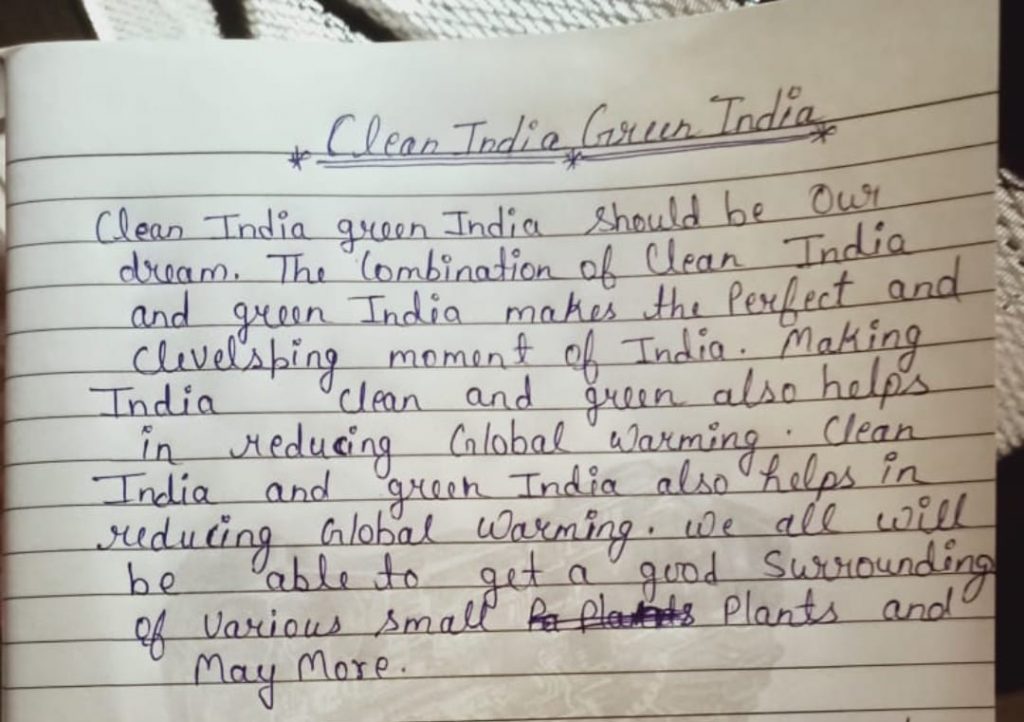 * Clean India * Green India *
Clean India green India should be Our
dream. The Combination of Clean India
and green India makes the Perfect and
Clevelsping moment of India. Making
India clean and green also helps
in reducing Global Warming. Clean
India and green India also helps in
reducing Global Warming. We all will
be able to get a good Surrounding
of Various small Plants and
May More.